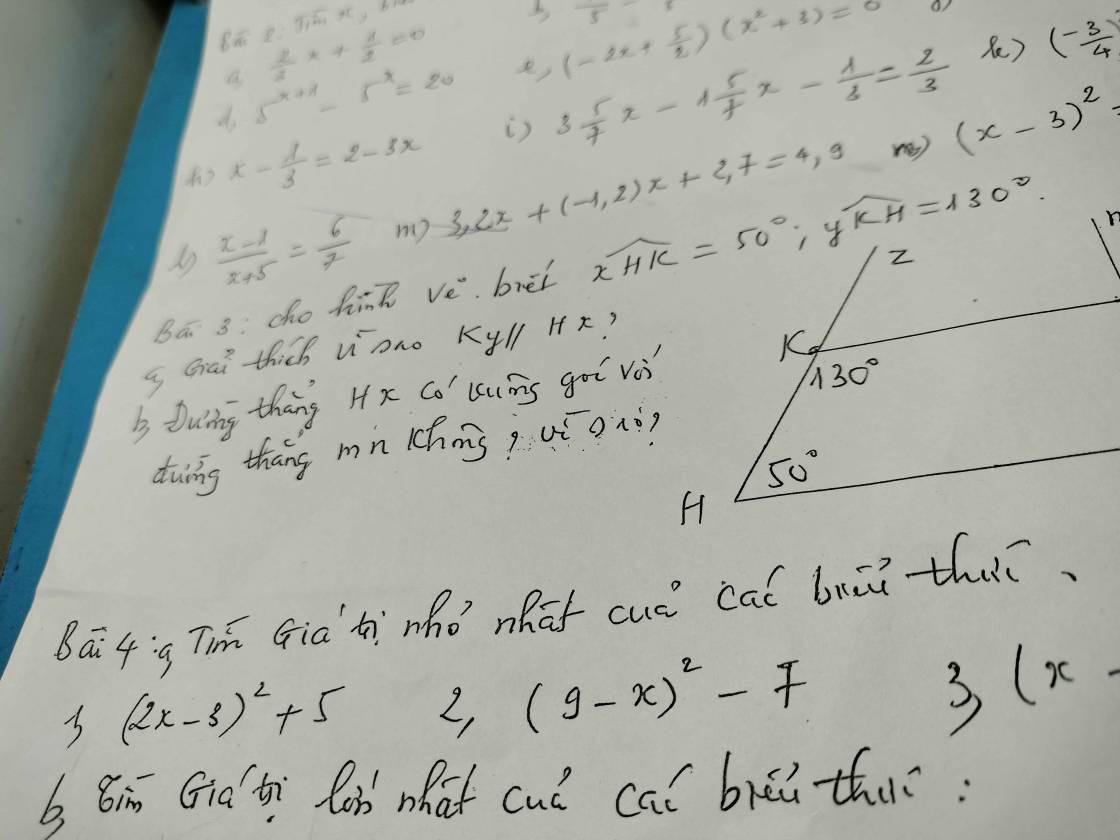 Bài 2: Tìm x, biết
a, 2/3 x + 1/2 = 0
e, (-2x + 5/2)(x² + 3) = 0
d, 5^(x+1) - 5^x = 20
i) 3 5/7 x - 1 5/7 x - 1/3 = 2/3 k) (-3/4
h) x - 1/3 = 2 - 3x
m) 3,2x + (-1,2)x + 2,7 = 4,9 (x - 3)²
l) x-1/x+5 = 6/7
Bài 3: cho hình vẽ. biết xHK = 50°; yKH = 130°.
a, Giải thích vì sao Ky // Hx?
b, Đường thẳng Hx có vuông goć với
đường thẳng mn không, vì sao?
z
K
130°
50°
H
Bài 4: a, Tìm Giá trị nhỏ nhất cuả các biểu thức
1, (2x - 3)² + 5 2, (9 - x)² - 7 3, (x -
b, Tìm Giá trị lớn nhất cuả các biểu thức: